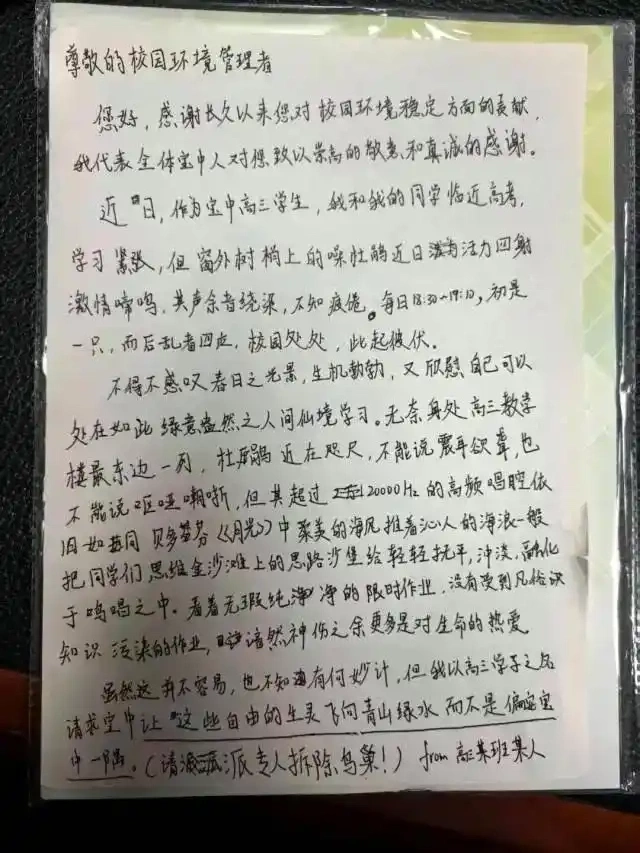 尊敬的校园环境管理者
您好，感谢长久以来您对校园环境稳定方面的贡献，
我代表全体宝中人对您致以崇高的敬意和真诚的感谢。
近日，作为宝中高三学生，我和我的同学临近高考，
学习紧张，但窗外树梢上的噪杜鹃近日活力四射
激情啼鸣，其声余音绕梁，不知疲倦。每日18:30~19:10，初是
一只，而后乱者四应，校园处处，此起彼伏。
不得不感叹春日之光景，生机勃勃，又欣慰自己可以
处在如此绿意盎然之人间仙境学习。无奈身处高三教学
楼最东边一列，杜鹃近在咫尺，不能说震耳欲聋，也
不能说呕哑嘲哳，但其超过20000Hz的高频唱腔依
旧如同贝多芬《月光》中聚美的海风推着沁人的海浪一般
把同学们思维金沙滩上的思路沙堡给轻轻抚平，冲淡，融化
于鸣唱之中。看着无瑕纯净的限时作业，没有受到凡俗
知识污染的作业，黯然神伤之余更多是对生命的热爱
虽然这并不容易，也不知有何妙计，但我以高三学子之名
请求宝中让这些自由的生灵飞向青山绿水而不是偏安宝
中一隅。（请派专人拆除鸟巢！） from 高三某班某人